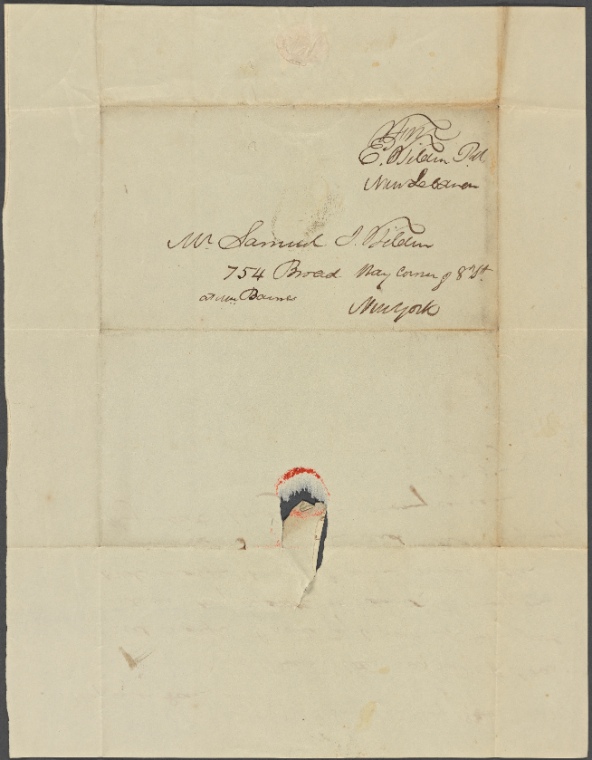 E. Tilden P.M.
New Lebanon
Mr Samuel J. Tilden
754 Broad Way Corner of 8th St.
at Mrs Barnes
New York